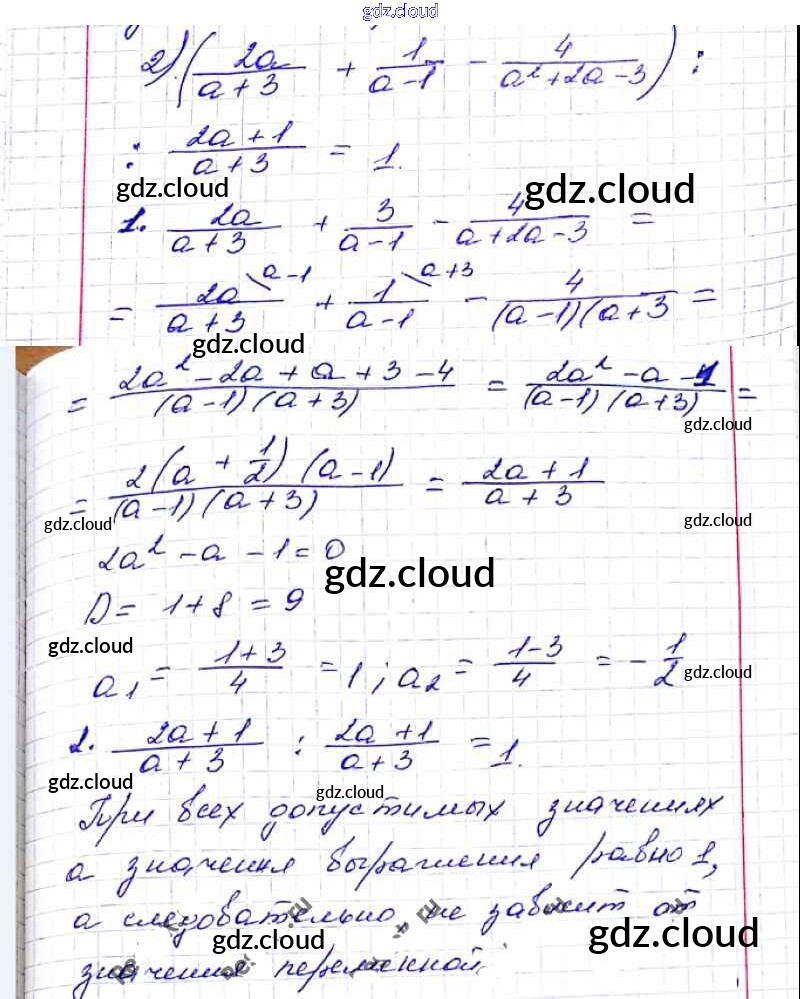 gdz.cloud
2) (2a/(a+3) + 1/(a-1) - 4/(a²+2a-3)) :
: (2a+1)/(a+3) = 1.
gdz.cloud
gdz.cloud
1. 2a/(a+3) + 3/(a-1) - 4/(a+2a-3) =
= 2a/(a+3) \a-1 + 1/(a-1) \a+3 - 4/((a-1)(a+3 =
gdz.cloud
= (2a²-2a+a+3-4)/((a-1)(a+3)) = (2a²-a-1)/((a-1)(a+3)) =
gdz.cloud
= 2(a+1/2)(a-1)/((a-1)(a+3)) = (2a+1)/(a+3)
gdz.cloud
gdz.cloud
2a²-a-1=0
gdz.cloud
D=1+8=9
gdz.cloud
a₁ = (1+3)/4 = 1; a₂ = (1-3)/4 = -1/2
gdz.cloud
2. (2a+1)/(a+3) : (2a+1)/(a+3) = 1.
gdz.cloud
gdz.cloud
При всех допустимых значениях
а значения выражения равно 1,
а следовательно, не зависит от
gdz.cloud
gdz.cloud
значения переменной.